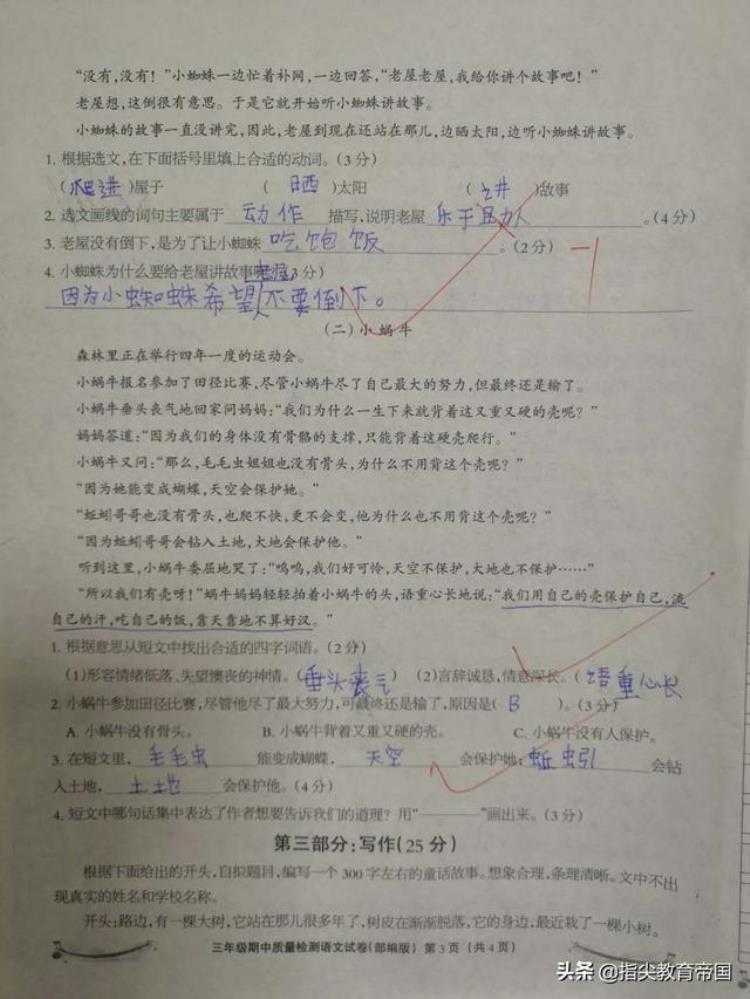 “没有,没有！”小蜘蛛一边忙着补网,一边回答,“老屋老屋,我给你讲个故事吧！”
老屋想,这倒很有意思。于是它就开始听小蜘蛛讲故事。
小蜘蛛的故事一直没讲完,因此,老屋到现在还站在那儿,边晒太阳,边听小蜘蛛讲故事。
1. 根据选文,在下面括号里填上合适的动词。(3分)
(爬进)屋子 (晒)太阳 (讲)故事
2. 选文画线的词句主要属于 动作 描写,说明老屋 乐于助人 。(4分)
3. 老屋没有倒下,是为了让小蜘蛛 吃饱饭 。(2分) -1
4. 小蜘蛛为什么要给老屋讲故事 3分)
老屋
因为小蜘蛛希望不要倒下。
(二)小蜗牛
森林里正在举行四年一度的运动会。
小蜗牛报名参加了田径比赛,尽管小蜗牛尽了自己最大的努力,但最终还是输了。
小蜗牛垂头丧气地回家问妈妈:“我们为什么一生下来就背着这又重又硬的壳呢？”
妈妈答道:“因为我们的身体没有骨骼的支撑,只能背着这硬壳爬行。”
小蜗牛又问:“那么,毛毛虫姐姐也没有骨头,为什么不用背这个壳呢？”
“因为她能变成蝴蝶,天空会保护她。”
“蚯蚓哥哥也没有骨头,也爬不快,更不会变,他为什么也不用背这个壳呢？”
“因为蚯蚓哥哥会钻入土地,大地会保护他。”
听到这里,小蜗牛委屈地哭了:“呜呜,我们好可怜,天空不保护,大地也不保护……”
“所以我们有壳呀！”蜗牛妈妈轻轻拍着小蜗牛的头,语重心长地说:“我们用自己的壳保护自己,流
自己的汗,吃自己的饭,靠天靠地不算好汉。”
1. 根据意思从短文中找出合适的四字词语。(2分)
(1)形容情绪低落、失望懊丧的神情。(垂头丧气) (2)言辞诚恳,情意深长。(语重心长
2. 小蜗牛参加田径比赛,尽管他尽了最大努力,可最终还是输了,原因是( B )。(3分)
A. 小蜗牛没有骨头。 B. 小蜗牛背着又重又硬的壳。 C. 小蜗牛没有人保护。
3. 在短文里, 毛毛虫 能变成蝴蝶, 天空 会保护她; 蚯蚓 会钻
入土地, 土地 会保护他。(4分)
4. 短文中哪句话集中表达了作者想要告诉我们的道理？用“————”画出来。(3分)
第三部分:写作(25分)
根据下面给出的开头,自拟题目,编写一个300字左右的童话故事。想象合理,条理清晰。文中不出
现真实的姓名和学校名称。
开头:路边,有一棵大树,它站在那儿很多年了,树皮在渐渐脱落,它的身边,最近栽了一棵小树。
三年级期中质量检测语文试卷(部编版) 第3页 (共4页)
头条 @指尖教育帝国